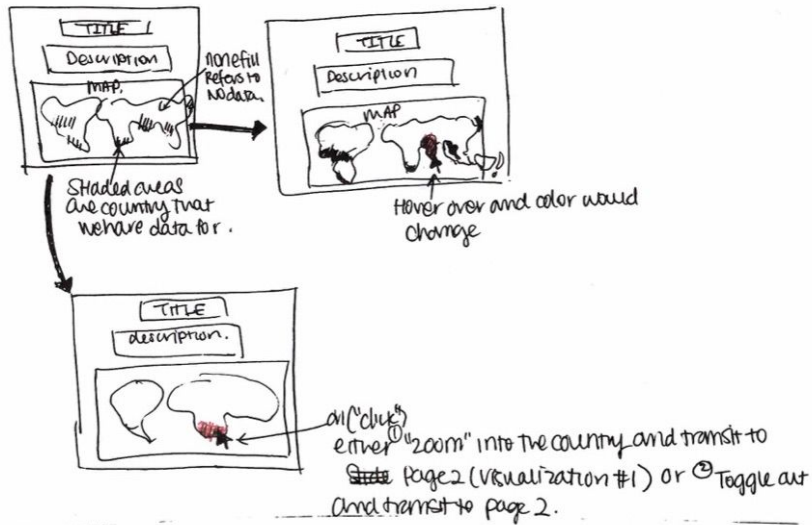 TITLE
Description
MAP.
none fill
Refers to
No data.
Shaded areas
are country that
we have data for.
TITLE
Description
MAP
Hover over and color would
change
TITLE
description.
on("click")
either ① "zoom" into the country and transit to
page 2 (visualization #1) or ② Toggle out
and transit to page 2.